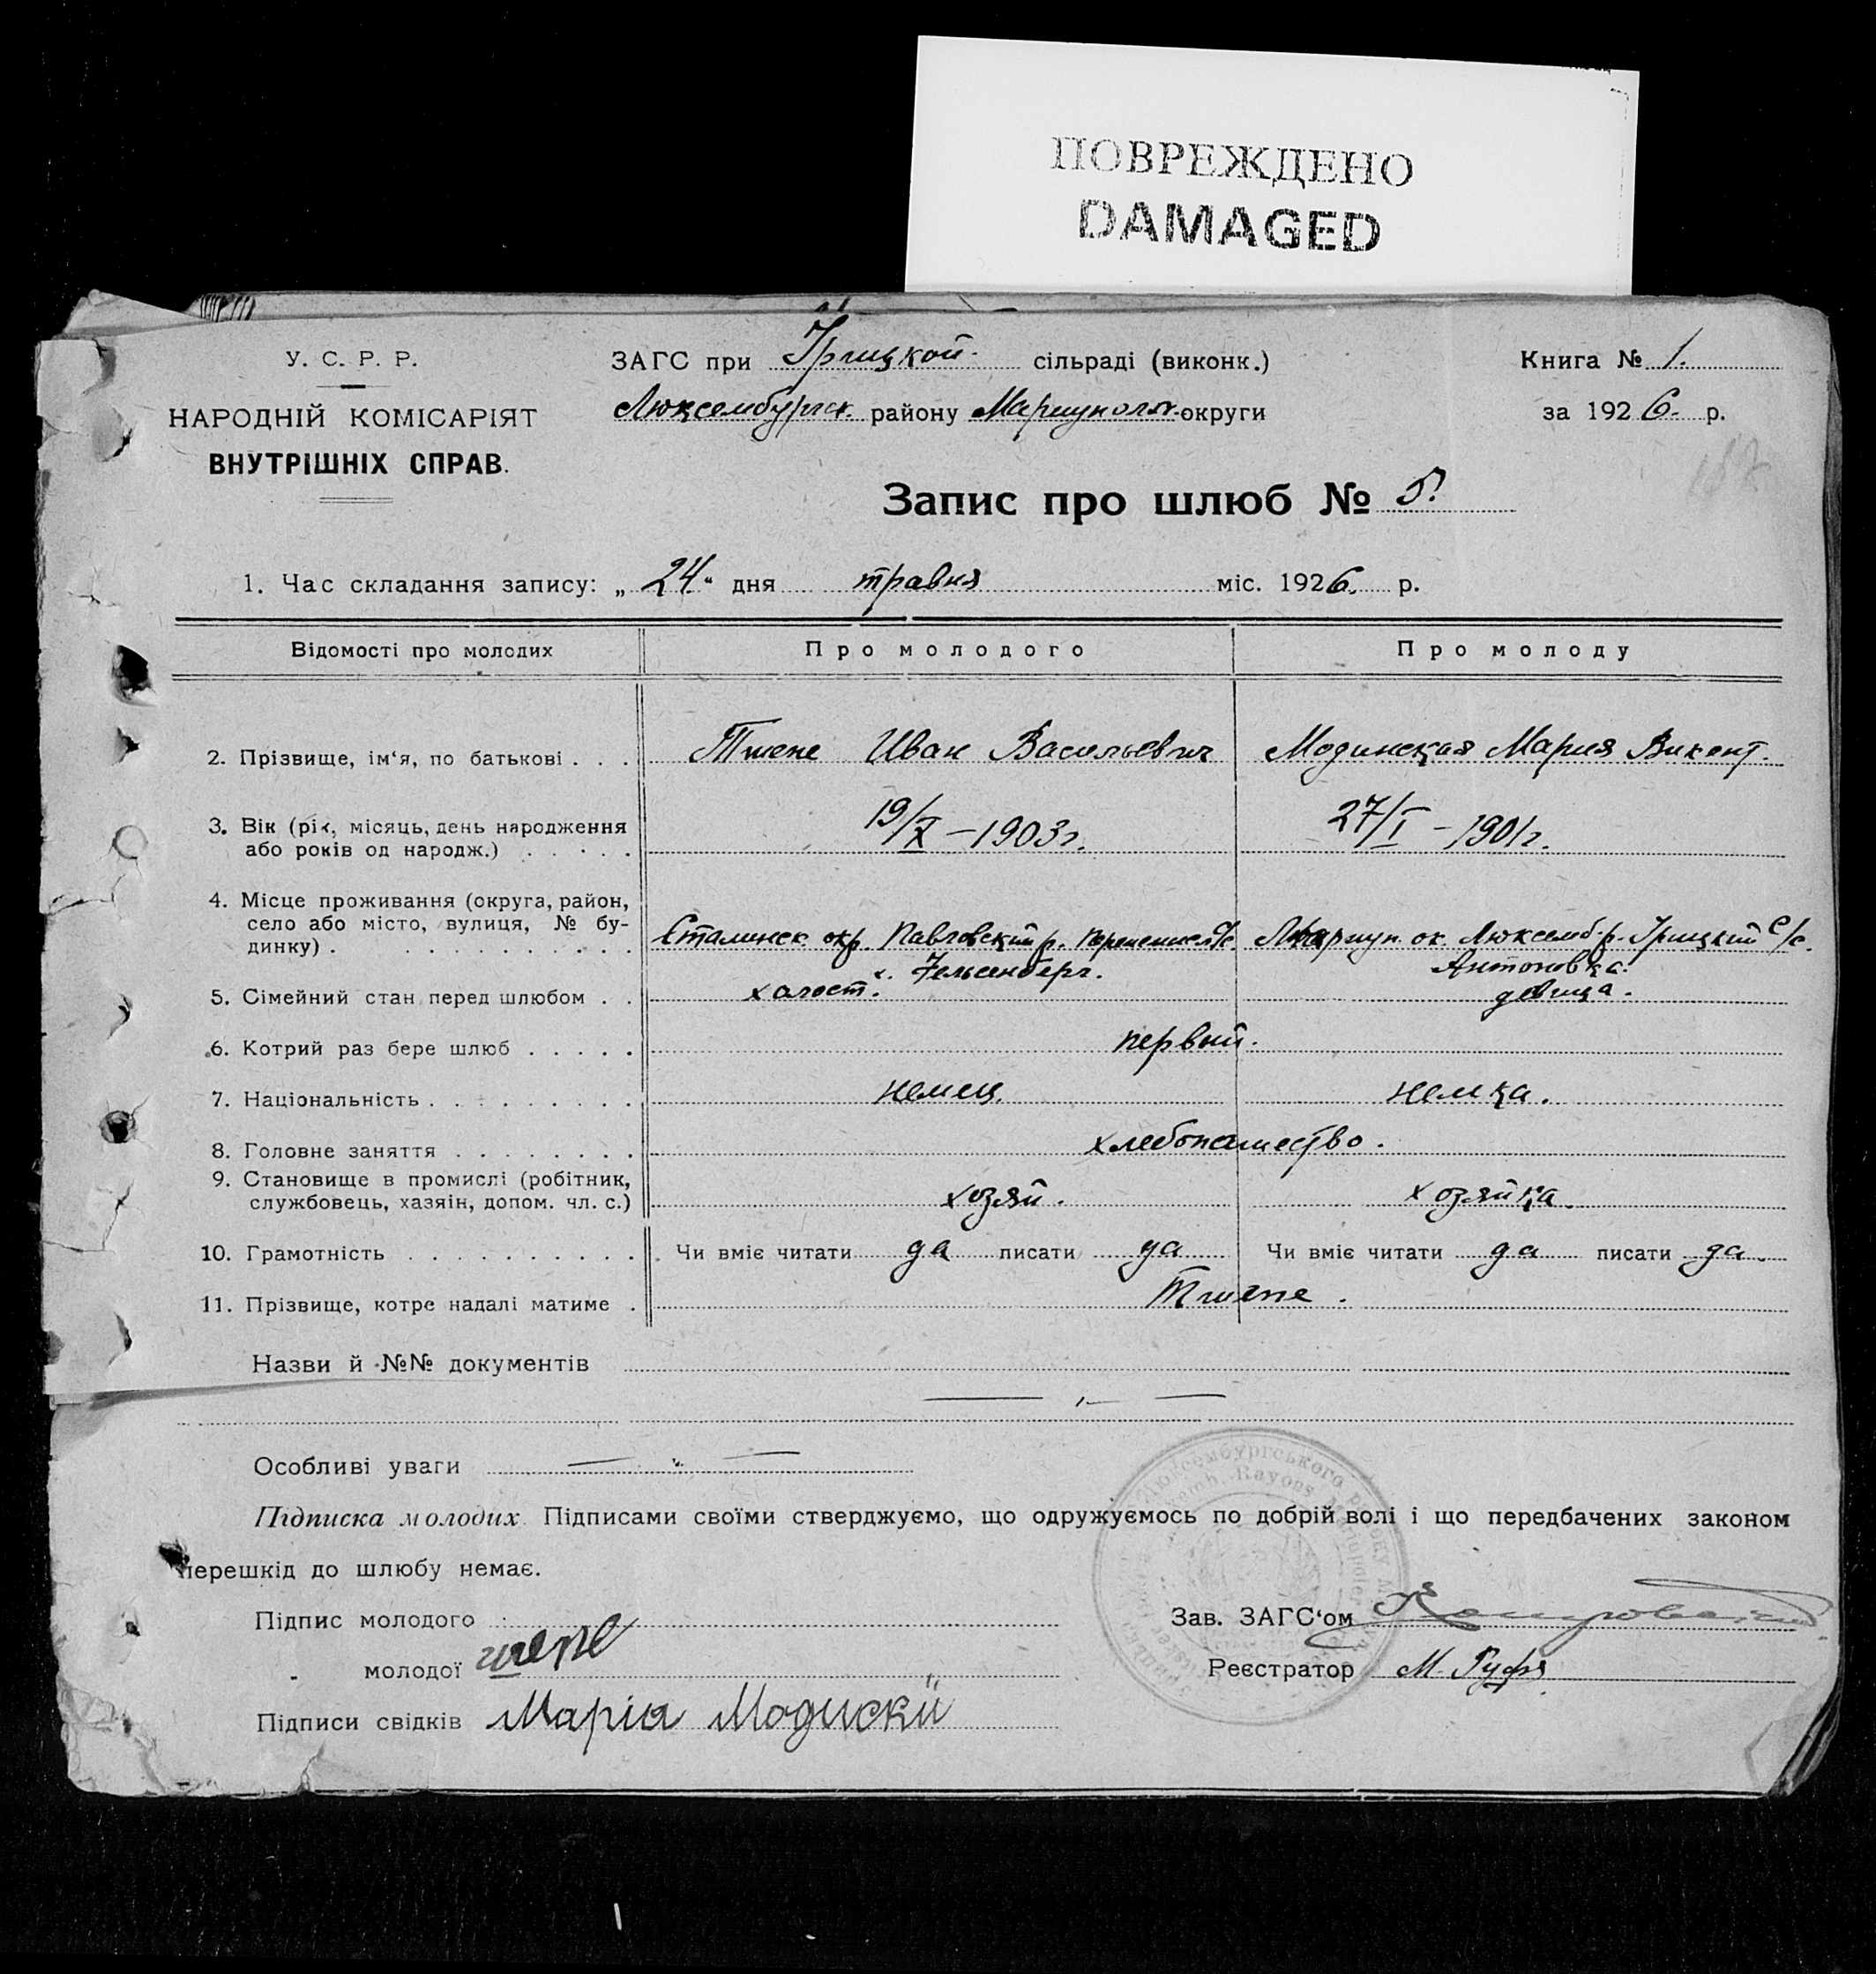 ПОВРЕЖДЕНО
DAMAGED
У. С. Р. Р.
НАРОДНІЙ КОМІСАРІЯТ
ВНУТРІШНІХ СПРАВ.
ЗАГС при сільраді (виконк.)
Люксембургск. району Мариуполь. округи
Книга № 1.
за 1926. р.
Запис про шлюб № 5.
1. Час складання запису: „24“ дня травня міс. 1926. р.
Відомості про молодих Про молодого Про молоду
2. Прізвище, ім‘я, по батькові . . . Тиепе Иван Васильевич Модинская Мария Викент.
3. Вік (рік, місяць, день народження або років од народж.) . . . . . 19/X – 1903г. 27/I – 1901г.
4. Місце проживання (округа, район, село або місто, вулиця, № будинку) . Сталинск. окр. Павловский р. с/с. Мариуп. ок. Люксемб. р. Грицкий с/с.
х. Гельсенберг. Антоновка.
5. Сімейний стан перед шлюбом . . холост. девица.
6. Котрий раз бере шлюб . . . . . первый.
7. Національність . . . . . . . . . немец. немка.
8. Головне заняття . . . . . . . . хлебопашество.
9. Становище в промислі (робітник, службовець, хазяін, допом. чл. с.) хозяй. хозяйка.
10. Грамотність . . . . . . . . . . Чи вміє читати да писати да Чи вміє читати да писати да.
11. Прізвище, котре надалі матиме . Тиепе.
Назви й №№ документів
Особливі уваги
Підписка молодих. Підписами своїми стверджуємо, що одружуємось по добрій волі і що передбачених законом
перешкід до шлюбу немає.
Підпис молодого
молодої
Підписи свідків Марія Модискй
Зав. ЗАГС‘ом
Реєстратор М.